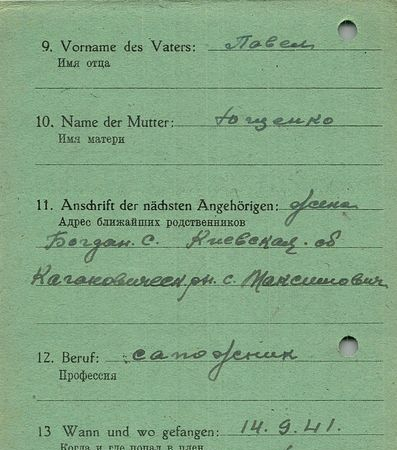 9. Vorname des Vaters: Павел
Имя отца
10. Name der Mutter: Ющенко
Имя матери
11. Anschrift der nächsten Angehörigen: жена
Адрес ближайших родственников
Богдан. С. Киевская об
Кагановическ рн. с. Максимович
12. Beruf: сапожник
Профессия
13 Wann und wo gefangen: 14.9.41.
Когда и где попал в плен